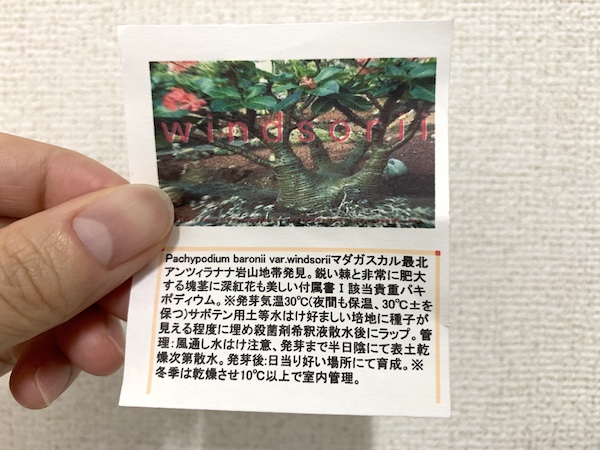 windsorii
Pachypodium baronii var.windsoriiマダガスカル最北
アンツィラナナ岩山地帯発見。鋭い棘と非常に肥大
する塊茎に深紅花も美しい付属書Ⅰ該当貴重パキ
ポディウム。※発芽気温30℃(夜間も保温、30℃±を
保つ)サボテン用土等水はけ好ましい培地に種子が
見える程度に埋め殺菌剤希釈液散水後にラップ。管
理：風通し水はけ注意、発芽まで半日陰にて表土乾
燥次第散水。発芽後：日当り好い場所にて育成。※
冬季は乾燥させ10℃以上で室内管理。